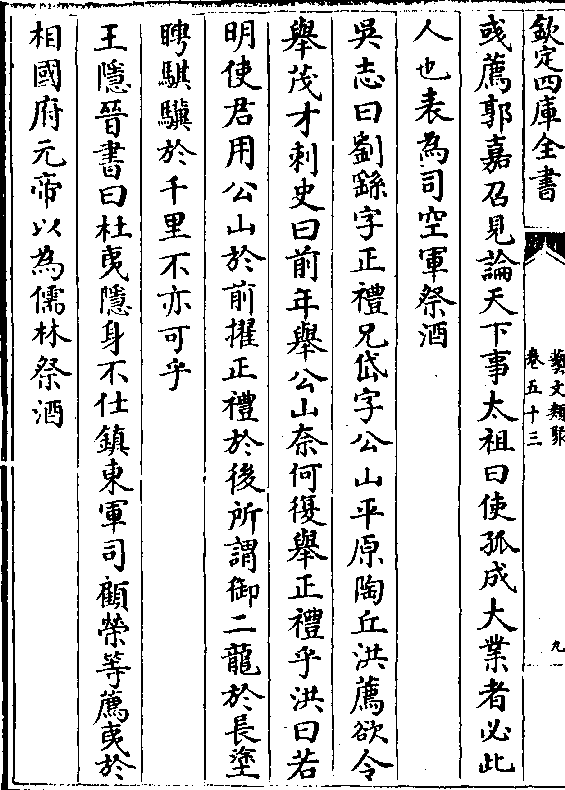 欽定四庫全書
藝文類聚
卷五十三
九
彧薦郭嘉召見論天下事太祖曰使孤成大業者必此
人也表為司空軍祭酒
吳志曰劉繇字正禮兄岱字公山平原陶丘洪薦欲令
舉茂才刺史曰前年舉公山奈何復舉正禮乎洪曰若
明使君用公山於前擢正禮於後所謂御二龍於長塗
騁騏驥於千里不亦可乎
王隱晉書曰杜夷隱身不仕鎮東軍司顧榮等薦夷於
相國府元帝以為儒林祭酒